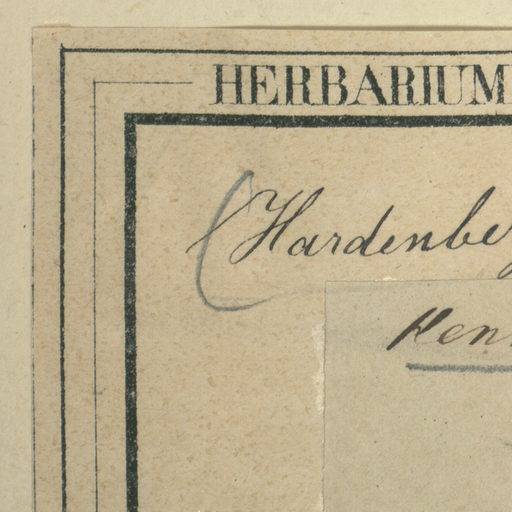 HERBARIUM
(Hardenbe
Ken